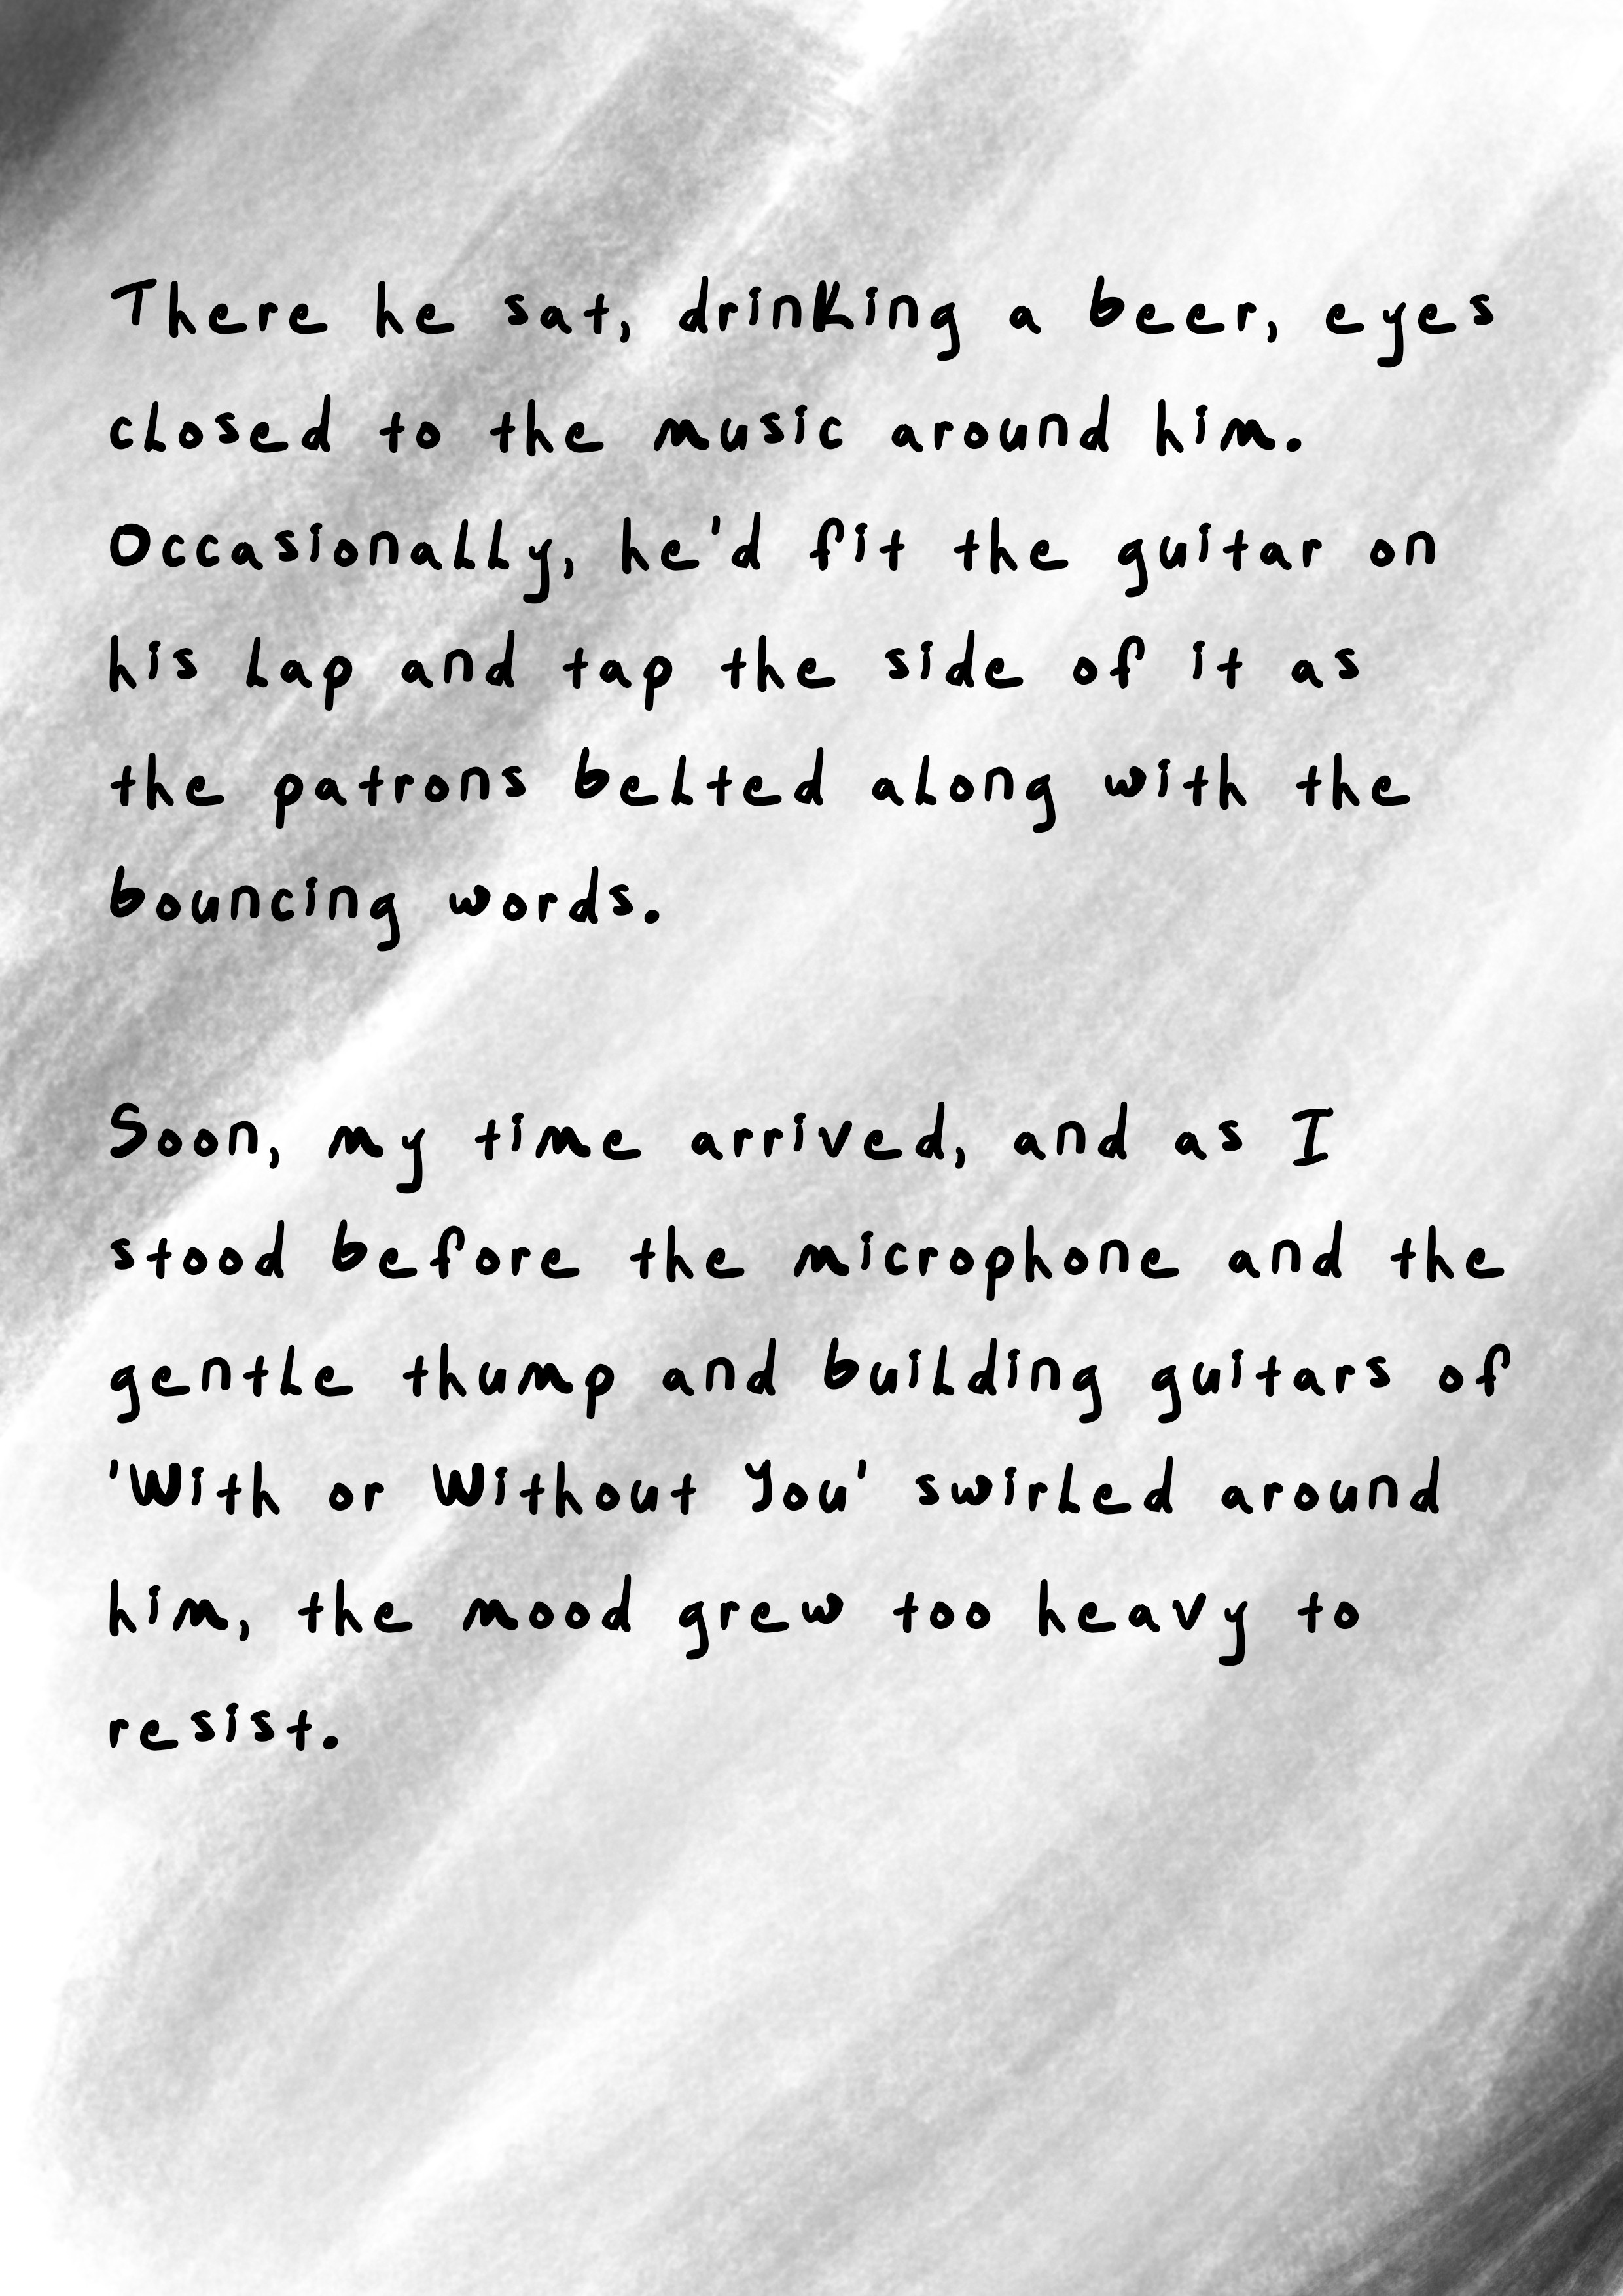 There he sat, drinking a beer, eyes
closed to the music around him.
Occasionally, he'd fit the guitar on
his lap and tap the side of it as
the patrons belted along with the
bouncing words.
Soon, my time arrived, and as I
stood before the microphone and the
gentle thump and building guitars of
'With or Without You' swirled around
him, the mood grew too heavy to
resist.